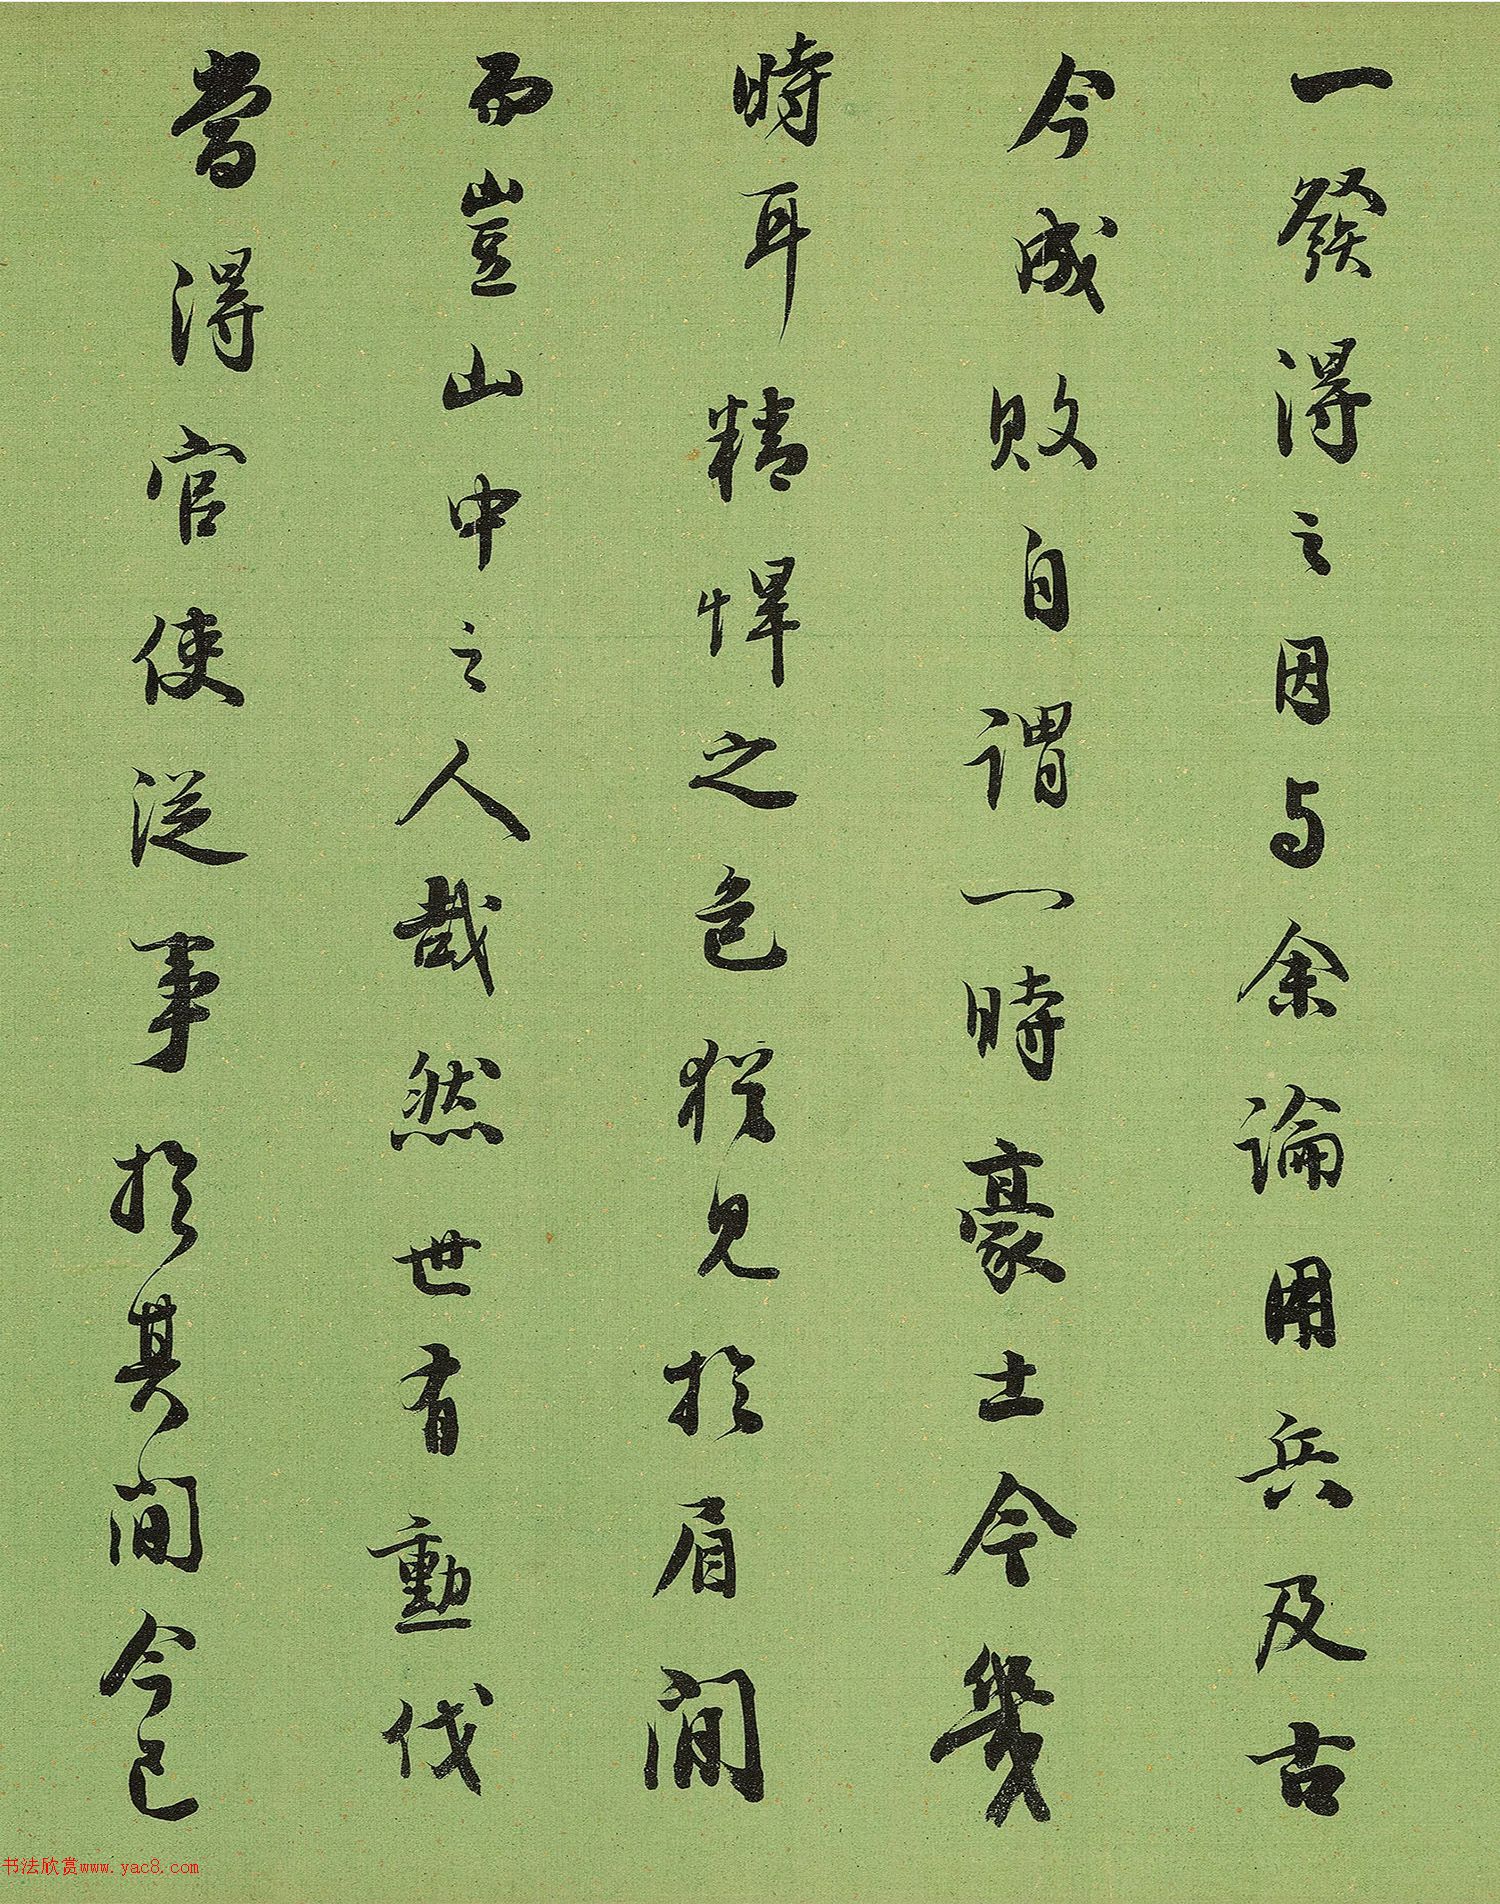 一發得之因与余論用兵及古
今成敗自謂一時豪士今幾
時耳精悍之色猶見於眉間
而豈山中之人哉然世有勳伐
當得官使從事於其間今已
书法欣赏www.yac8.com